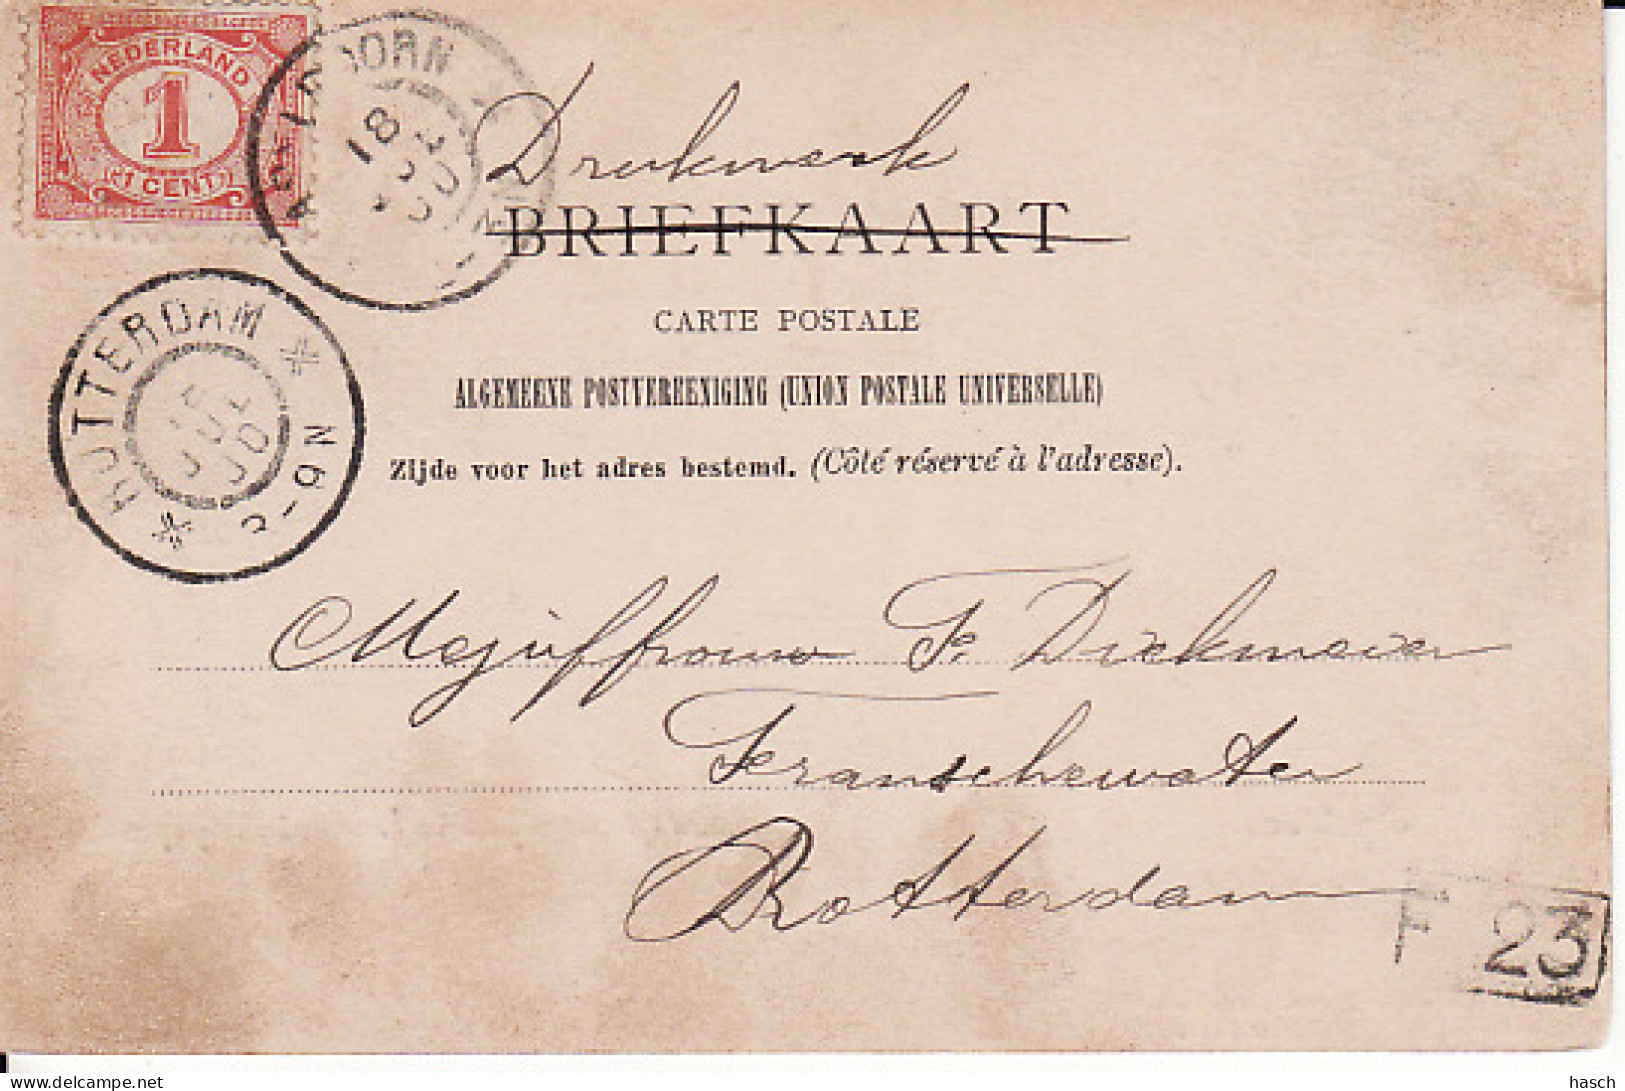 NEDERLAND
1
1 CENT
18 JUL 00
Drukwerk
BRIEFKAART
CARTE POSTALE
ALGEMEENE POSTVEREENIGING (UNION POSTALE UNIVERSELLE)
Zijde voor het adres bestemd. (Côté réservé à l'adresse).
ROTTERDAM
JUL
Mejuffrouw F. Diekmeier
Franschewater
Rotterdam
F 23
www.delcampe.net
hasch